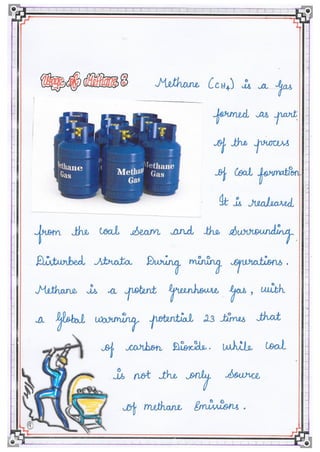 Usage of Methane :
Methane (CH4) is a gas
formed as part
of the process
of Coal formation
It is realeased
from the coal seam and the surrounding
Disturbed strata During mining operations.
Methane is a potent greenhouse gas, with
a global warming potential 23 times that
of carbon Dioxide. While coal
is not the only source
of methane Emissions.
Methane
Gas
Methane
Gas
Methane
Gas